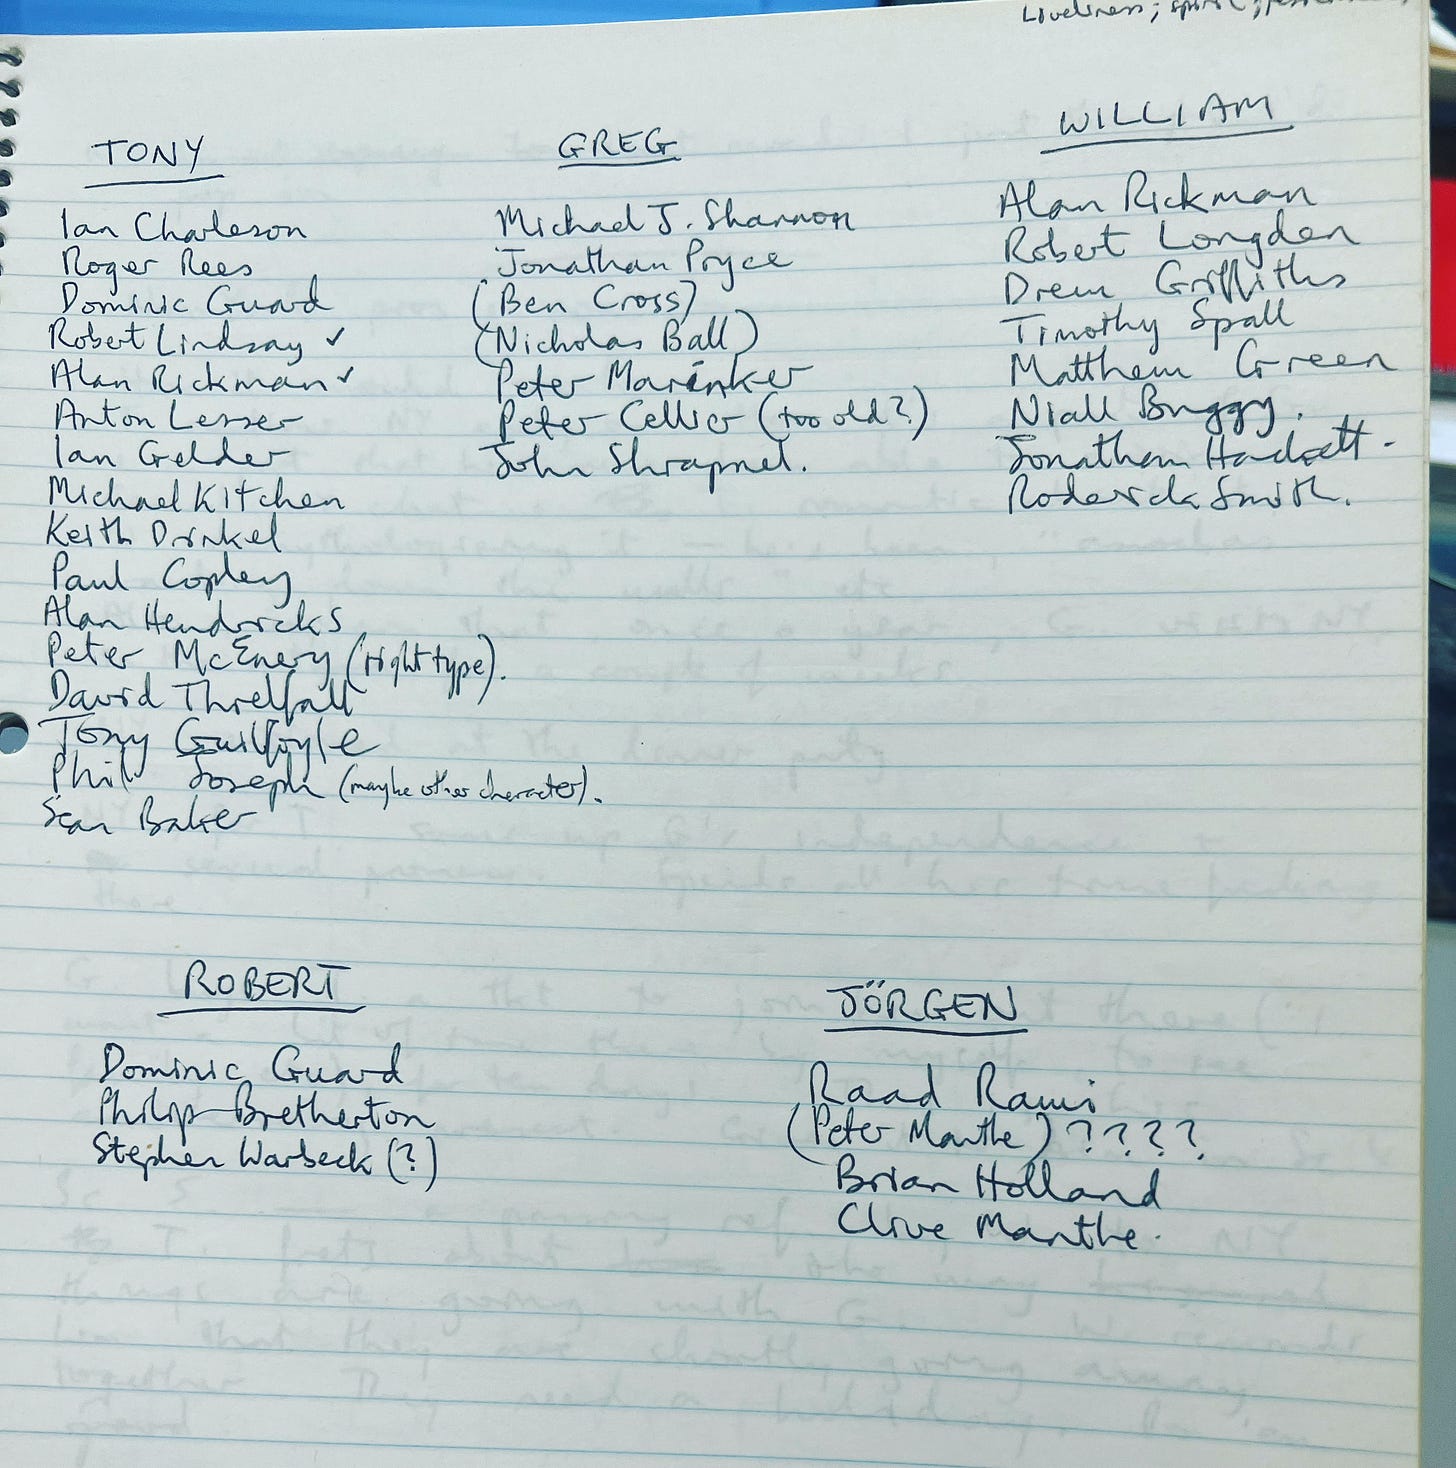 Loveliness; spirit;
TONY
Ian Charleson
Roger Rees
Dominic Guard
Robert Lindsay ✓
Alan Rickman ✓
Anton Lesser
Ian Gelder
Michael Kitchen
Keith Drinkel
Paul Copley
Alan Hendricks
Peter McEnery (right type).
David Threlfall
Tony Guilfoyle
Phil Joseph (maybe other character).
Sean Baker
GREG
Michael J. Shannon
Jonathan Pryce
(Ben Cross)
(Nicholas Ball)
Peter Marinker
Peter Cellier (too old?)
John Shrapnel.
WILLIAM
Alan Rickman
Robert Longden
Drew Griffiths
Timothy Spall
Matthew Green
Niall Buggy.
Jonathan Hackett -
Roderick Smith.
ROBERT
Dominic Guard
Philip Bretherton
Stephen Warbeck (?)
JÖRGEN
Raad Rawi
(Peter Manthe) ????
Brian Holland
Clive Manthe.